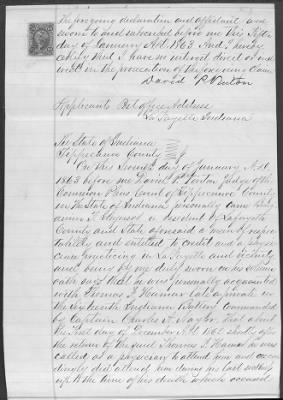 The foregoing declaration and affidavit was
sworn to and subscribed before me this fifth
day of January A.D. 1863 And I hereby
certify that I have no interest direct or in-
direct in the prosecution of the foregoing claim
David P. Vinton
Applicants Post office Address
La Fayette Indiana
The State of Indiana
Tippecanoe County
On this day of January A.D.
1863 before me David P. Vinton Judge of the
Common Pleas Court of Tippecanoe County
in the State of Indiana personally came Benj-
amin a resident of Lafayette
County and State aforesaid a man of respec-
tability and entitled to credit and a physi-
cian practicing in La Fayette and vicinity
and being by me duly sworn on his solemn
oath says that he was personally acquainted
with Thomas J. late a private in
the Eighteenth Indiana Battery commanded
by Captain that about
the last day of December A.D. 1862 shortly after
the return of the said Thomas J. he was
called as a physician to attend him and accor-
dingly did attend him during his last sickness
up to the time of his death which occurred